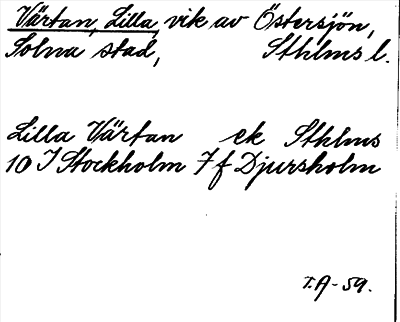 Värtan, Lilla, vik av Östersjön,
Solna stad, Sthlms l.
Lilla Värtan ek Sthlms
10 I Stockholm 7 f Djursholm
T.A-59.